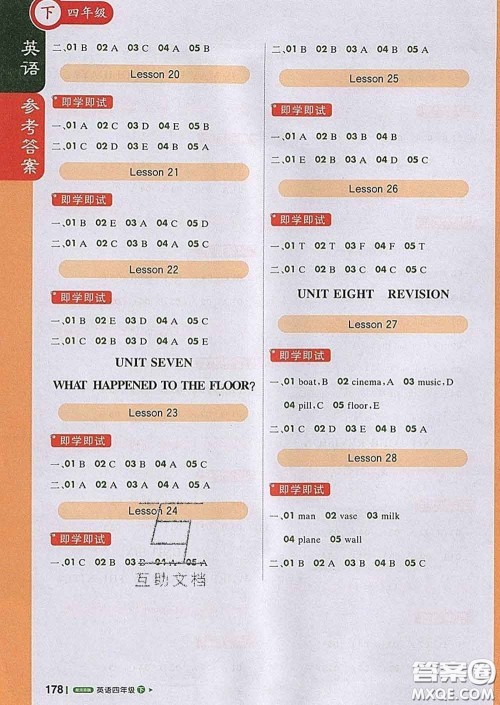 下 四年级
英语
参考答案
二、01 B 02 A 03 C 04 A 05 B
Lesson 20
即学即试
一、01 A 02 C 03 D 04 E 05 B
二、01 C 02 D 03 B 04 B 05 A
Lesson 21
即学即试
一、01 B 02 E 03 A 04 C 05 D
二、01 B 02 A 03 C 04 A 05 C
Lesson 22
即学即试
一、01 B 02 C 03 D 04 A 05 E
二、01 C 02 D 03 B 04 A 05 E
UNIT SEVEN
WHAT HAPPENED TO THE FLOOR?
Lesson 23
即学即试
一、01 B 02 C 03 B 04 A 05 C
二、01 B 02 A 03 D 04 C 05 A
Lesson 24
即学即试
一、01 C 02 B 03 B 04 A 05 A
互助文档
二、01 B 02 D 03 C 04 B 05 C
Lesson 25
即学即试
一、01 C 02 A 03 E 04 B 05 D
二、01 C 02 B 03 B 04 A 05 A
Lesson 26
即学即试
一、01 T 02 T 03 F 04 F 05 T
二、01 C 02 D 03 B 04 B 05 A
UNIT EIGHT REVISION
Lesson 27
即学即试
一、01 boat, B 02 cinema, A 03 music, D
04 pill, C 05 floor, E
二、01 C 02 D 03 B 04 A 05 C
Lesson 28
即学即试
一、01 man 02 vase 03 milk
04 plane 05 wall
二、01 C 02 A 03 B 04 B 05 C
178 英语四年级 下
答案圈
MXQE.COM